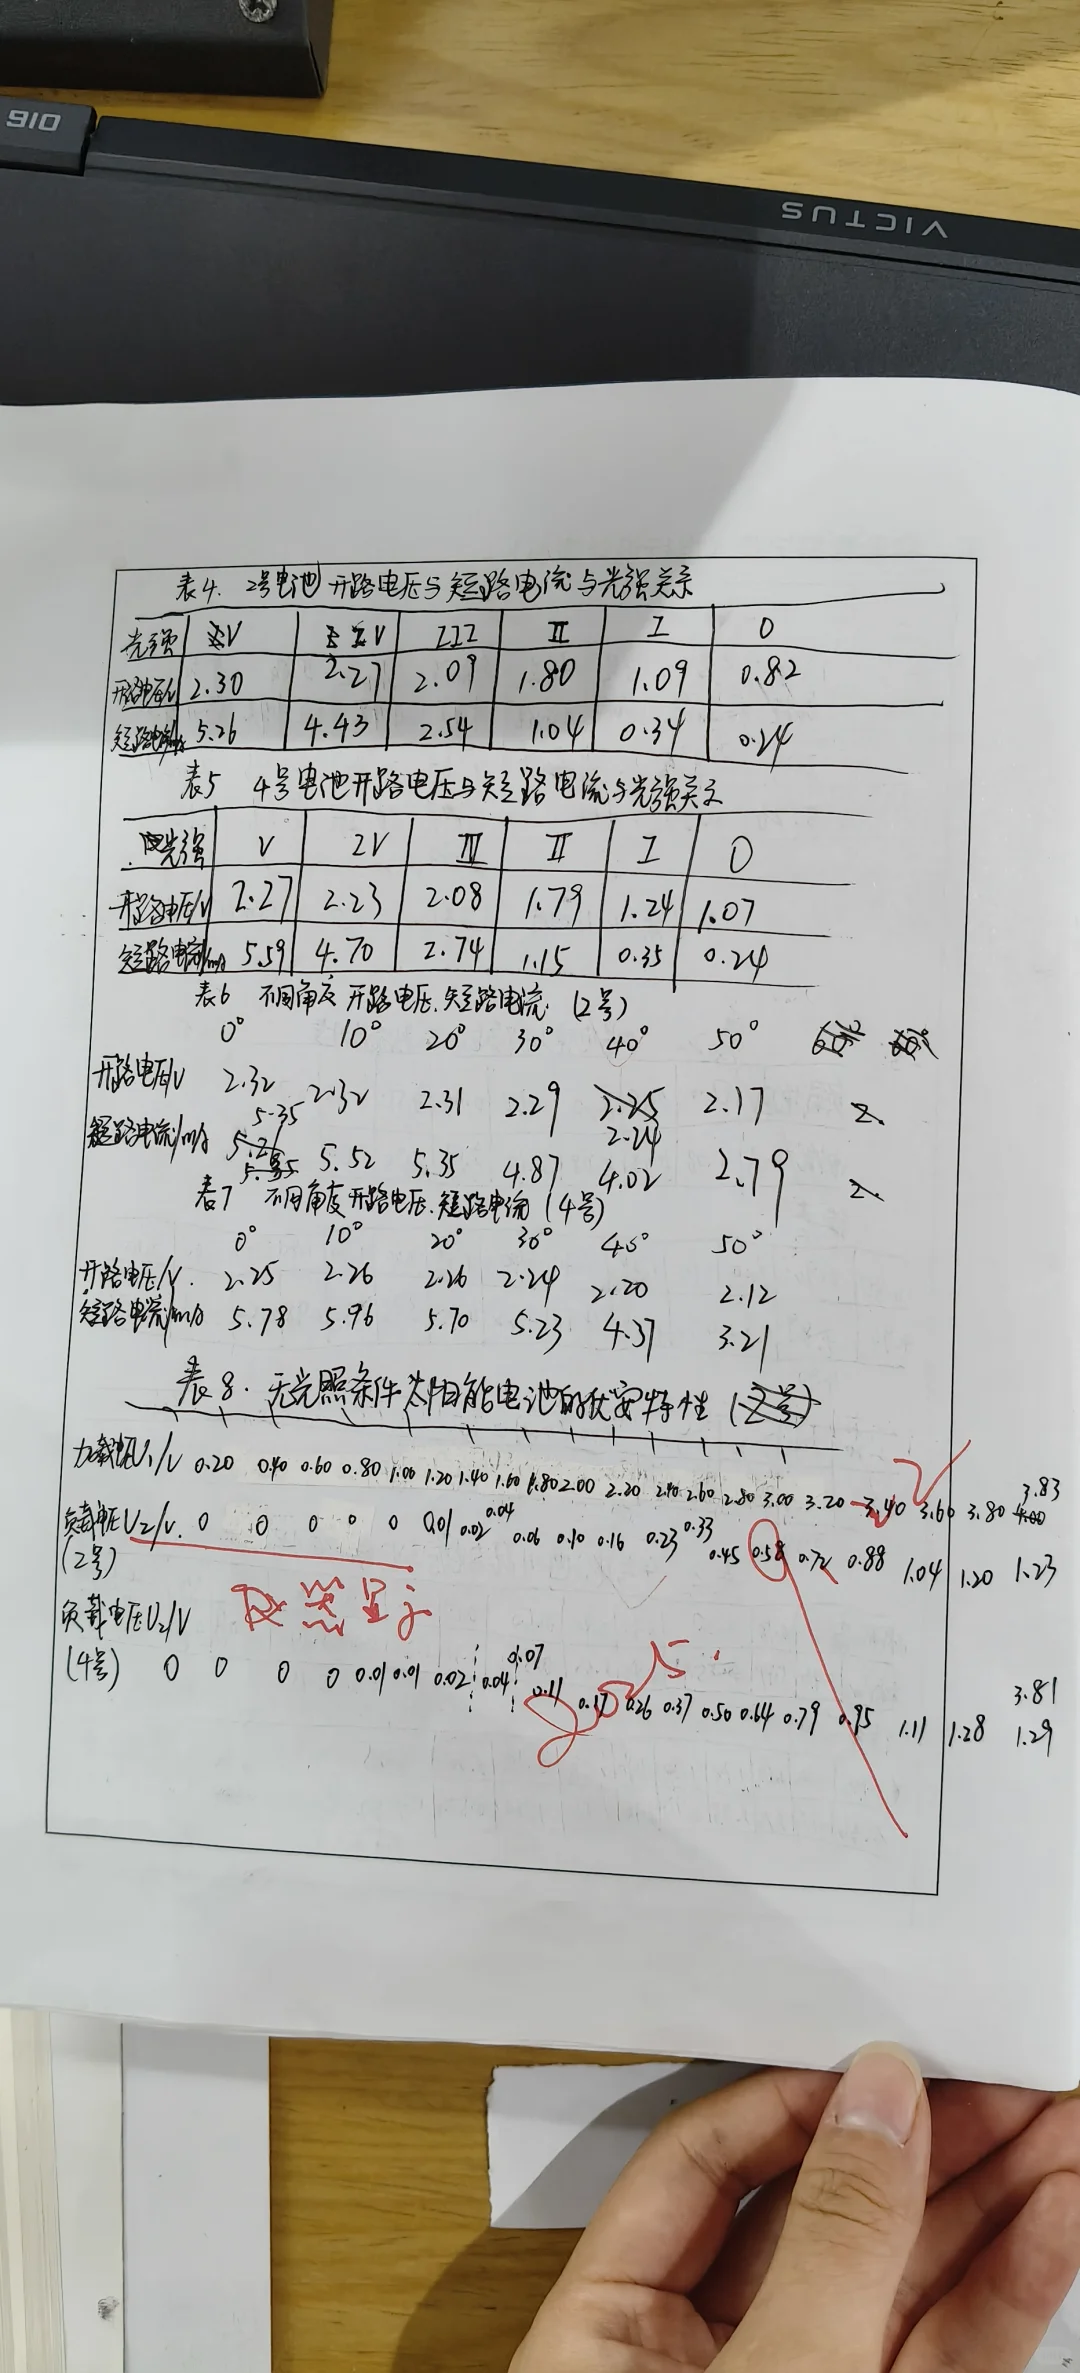 VICTUS
表4. 2号电池开路电压与短路电流与光强关系
光强 V IV III II I 0
开路电压/V 2.30 2.27 2.09 1.80 1.09 0.82
短路电流/mA 5.26 4.43 2.54 1.04 0.34 0.24
表5 4号电池开路电压与短路电流与光强关系
光强 V IV III II I 0
开路电压/V 2.27 2.23 2.08 1.79 1.24 1.07
短路电流/mA 5.59 4.70 2.74 1.15 0.35 0.24
表6 不同角度开路电压、短路电流 (2号)
0° 10° 20° 30° 40° 50°
开路电压/V 2.32 2.32 2.31 2.29 2.25 2.17 2.
2.24
5.35
短路电流/mA 5.52 5.35 4.87 4.02 2.79 2.
表7 不同角度开路电压、短路电流 (4号)
0° 10° 20° 30° 40° 50°
开路电压/V. 2.25 2.26 2.26 2.24 2.20 2.12
短路电流/mA 5.78 5.96 5.70 5.23 4.37 3.21
表8. 无光照条件太阳能电池的伏安特性 (2号)
3.83
加载电压U₁/V 0.20 0.40 0.60 0.80 1.00 1.20 1.40 1.60 1.80 2.00 2.20 2.40 2.60 2.80 3.00 3.20 3.40 3.60 3.80 4.00
负载电压U₂/V. 0 0 0 0 0 0.01 0.02 0.04 0.06 0.10 0.16 0.23 0.33 0.45 0.58 0.72 0.88 1.04 1.20 1.23
(2号)
负载电压U₂/V
(4号) 0 0 0 0 0.01 0.01 0.02 0.04 0.07 0.11 0.17 0.26 0.37 0.50 0.64 0.79 0.95 1.11 1.28 1.29
3.81